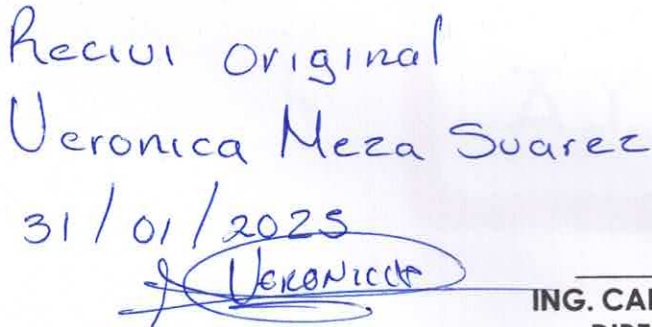 Recivi original
Veronica Meza Suarez
31/01/2025
VERONICA
ING.